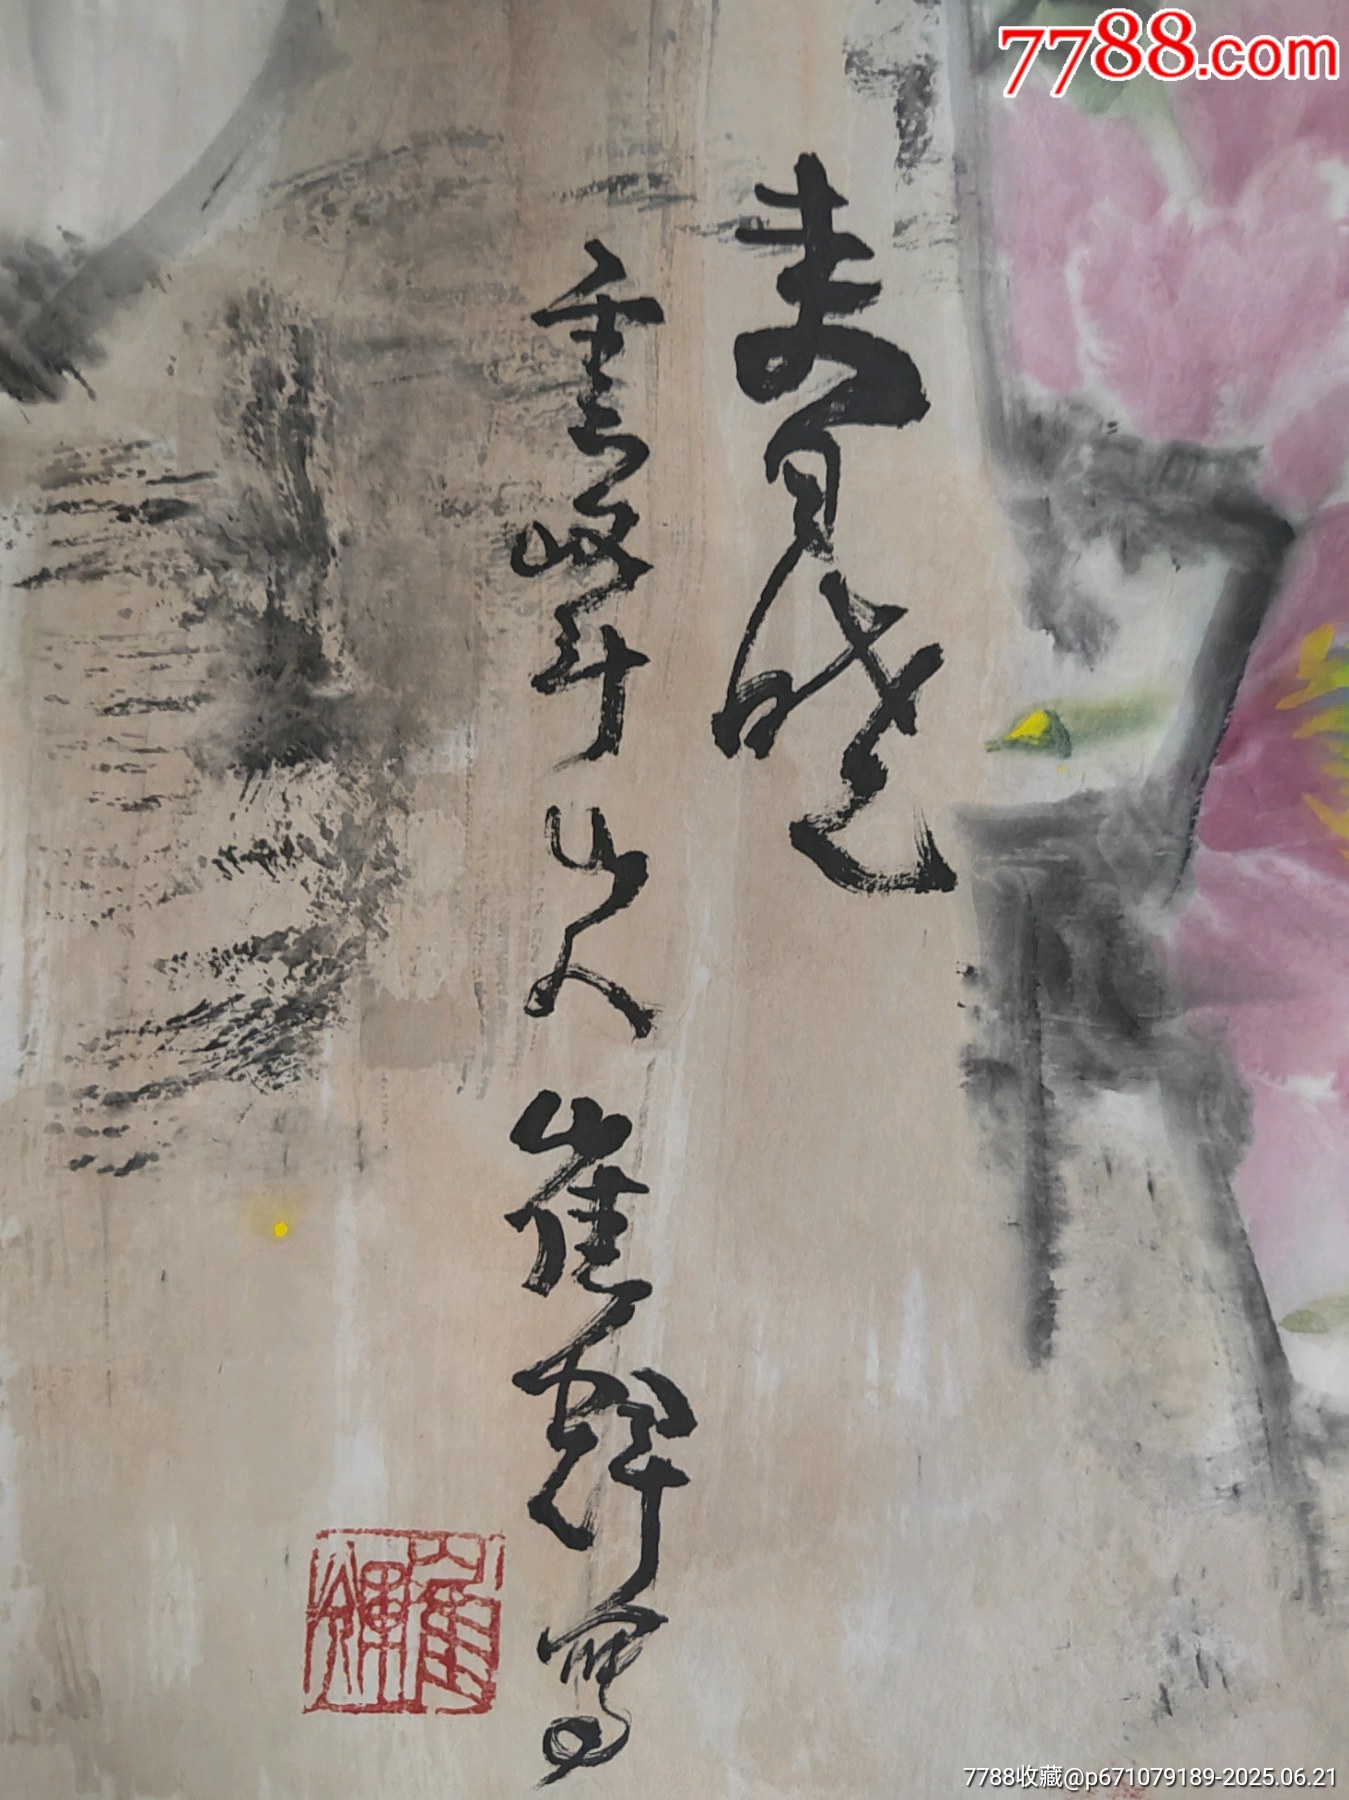 7788.com
春晓
雲峰山人崔辉寫
7788收藏@p671079189-2025.06.21